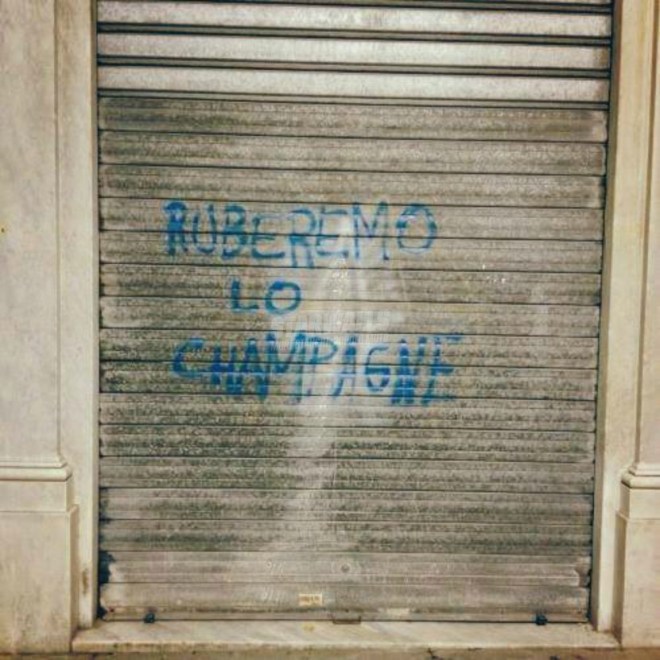 RUBEREMO
LO
CHAMPAGNE